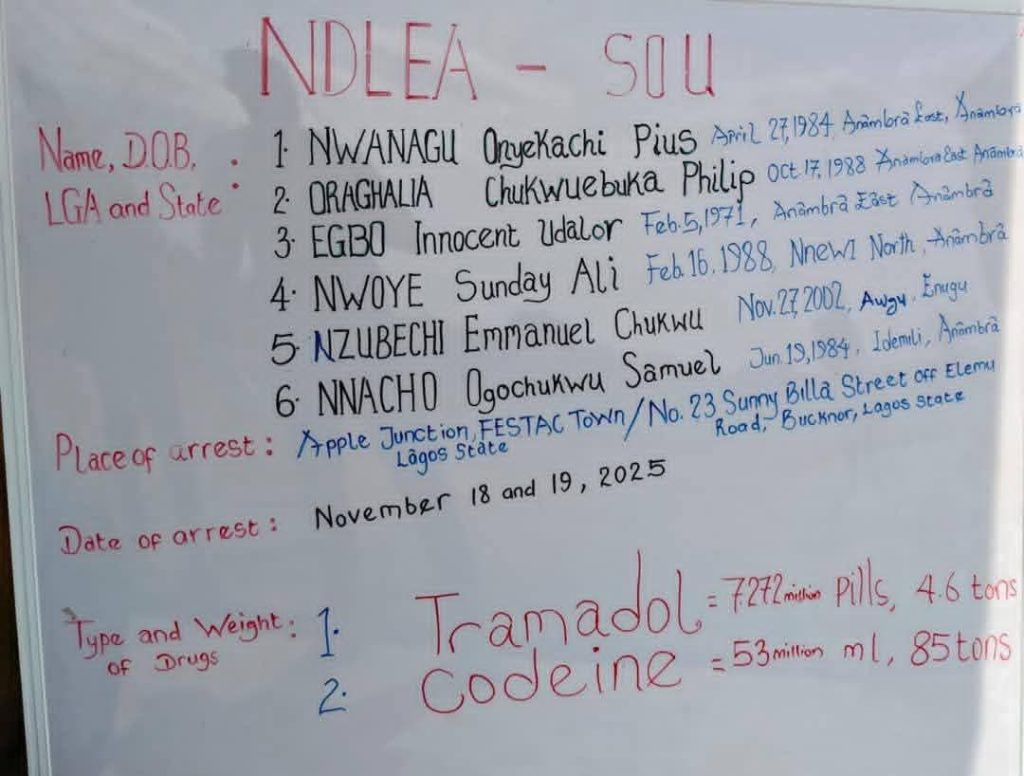 NDLEA - SOU
Name, D.O.B,
LGA and State
1. NWANAGU Onyekachi Pius April 27, 1984, Anambra East, Anambra
2. ORAGHALIA Chukwuebuka Philip Oct 17, 1988 Anambra East Anambra
3. EGBO Innocent Udalor Feb. 5, 1971, Anambra East Anambra
4. NWOYE Sunday Ali Feb. 16. 1988, Nnewi North, Anambra
5. NZUBECHI Emmanuel Chukwu Nov. 27, 2002, Awgu, Enugu
6. NNACHO Ogochukwu Samuel Jun. 19, 1984, Idemili, Anambra
Place of arrest: Apple Junction, FESTAC Town/No. 23 Sunny Billa Street off Elemu
Lagos State Road, Bucknor, Lagos State
Date of arrest: November 18 and 19, 2025
Type and Weight:
of Drugs
1. Tramadol = 7.272 million Pills, 4.6 tons
2. Codeine = 53 million ml, 85 tons